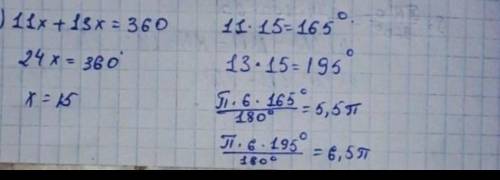 ) 11x + 13x = 360
24x = 360°
x = 15
11 · 15 = 165°.
13 · 15 = 195°
П · 6 · 165° / 180° = 5,5 π
П · 6 · 195° / 180° = 6,5 π